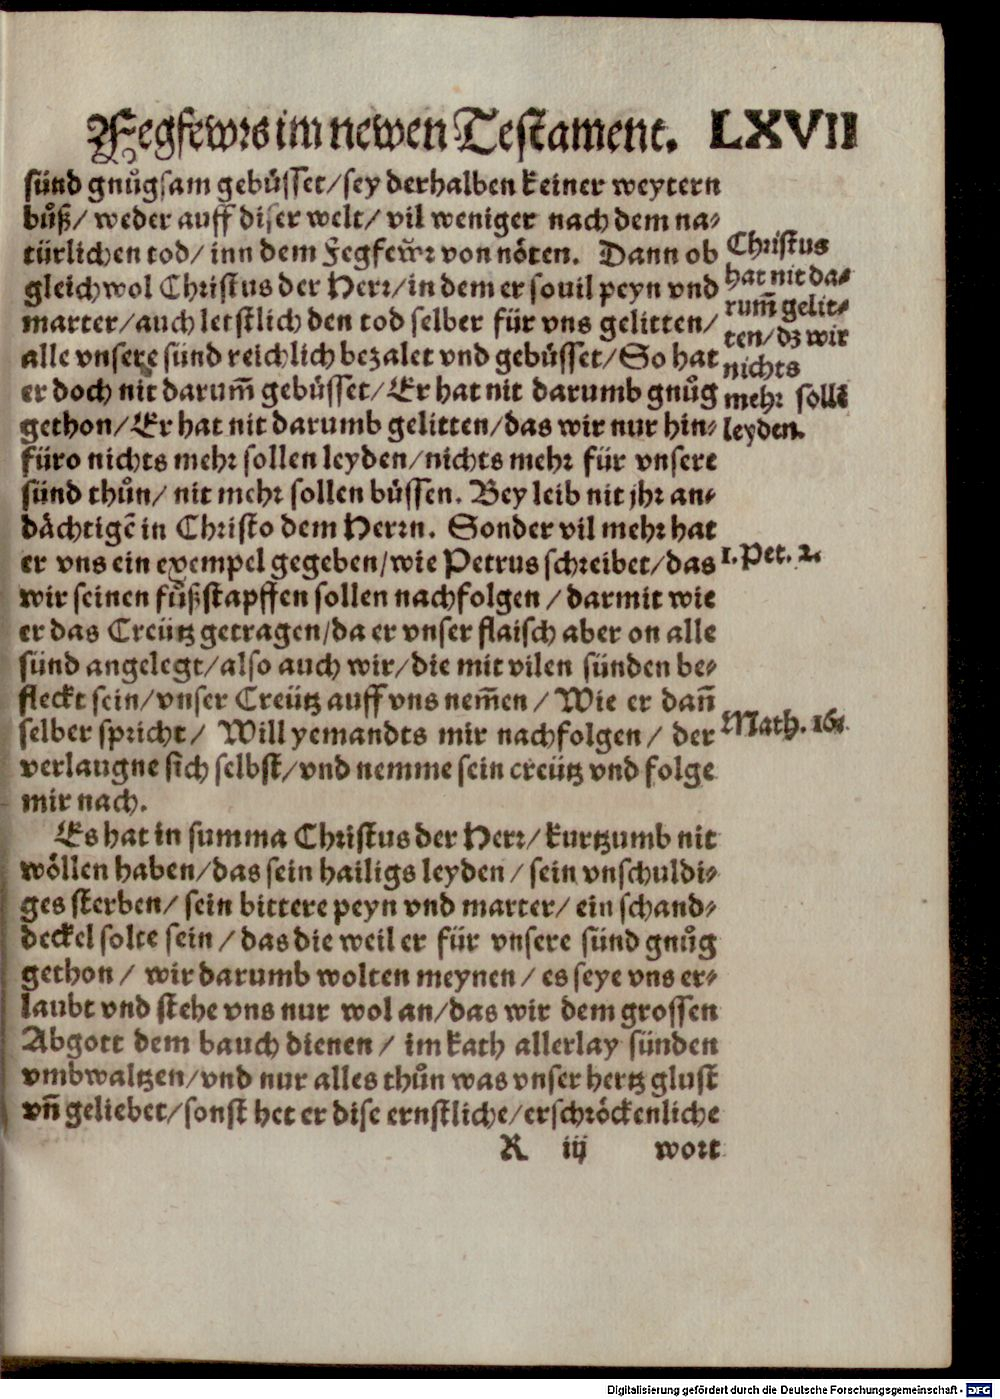 Fegfewrs im newen Testament. LXVII
sünd gnůgsam gebüsset/sey derhalben keiner weytern
bůß/ weder auff diser welt/ vil weniger nach dem na-
türlichen tod/ inn dem Fegfew̎r von nöten. Dann ob
gleichwol Christus der Herr/in dem er souil peyn vnd
marter/auch letstlich den tod selber für vns gelitten/
alle vnsere sünd reichlich bezalet vnd gebüsset/So hat
er doch nit darum̃ gebüsset/Er hat nit darumb gnůg
gethon/Er hat nit darumb gelitten/das wir nur hin-
füro nichts mehr sollen leyden/nichts mehr für vnsere
sünd thůn/ nit mehr sollen büssen. Bey leib nit jhr an-
dächtigẽ in Christo dem Herrn. Sonder vil mehr hat
er vns ein exempel gegeben/wie Petrus schreibet/das
wir seinen fůßstapffen sollen nachfolgen / darmit wie
er das Creütz getragen/da er vnser flaisch aber on alle
sünd angelegt/also auch wir/die mit vilen sünden be-
fleckt sein/vnser Creütz auff vns nem̃en / Wie er dañ
selber spricht/ Will yemandts mir nachfolgen/ der
verlaugne sich selbst/vnd nemme sein creütz vnd folge
mir nach.
Es hat in summa Christus der Herr/kurtzumb nit
wöllen haben/das sein hailigs leyden / sein vnschuldi-
ges sterben/ sein bittere peyn vnd marter/ ein schand-
deckel solte sein / das die weil er für vnsere sünd gnůg
gethon / wir darumb wolten meynen / es seye vns er-
laubt vnd stehe vns nur wol an/das wir dem grossen
Abgott dem bauch dienen / im kath allerlay sünden
vmbwaltzen/vnd nur alles thůn was vnser hertz glust
vñ geliebet/sonst het er dise ernstliche/erschröckenliche
R iij wort
Christus
hat nit da-
rum̃ gelit-
ten/dz wir
nichts
mehr sollẽ
leyden.
1. Pet. 2.
Math. 16.
Digitalisierung gefördert durch die Deutsche Forschungsgemeinschaft - DFG